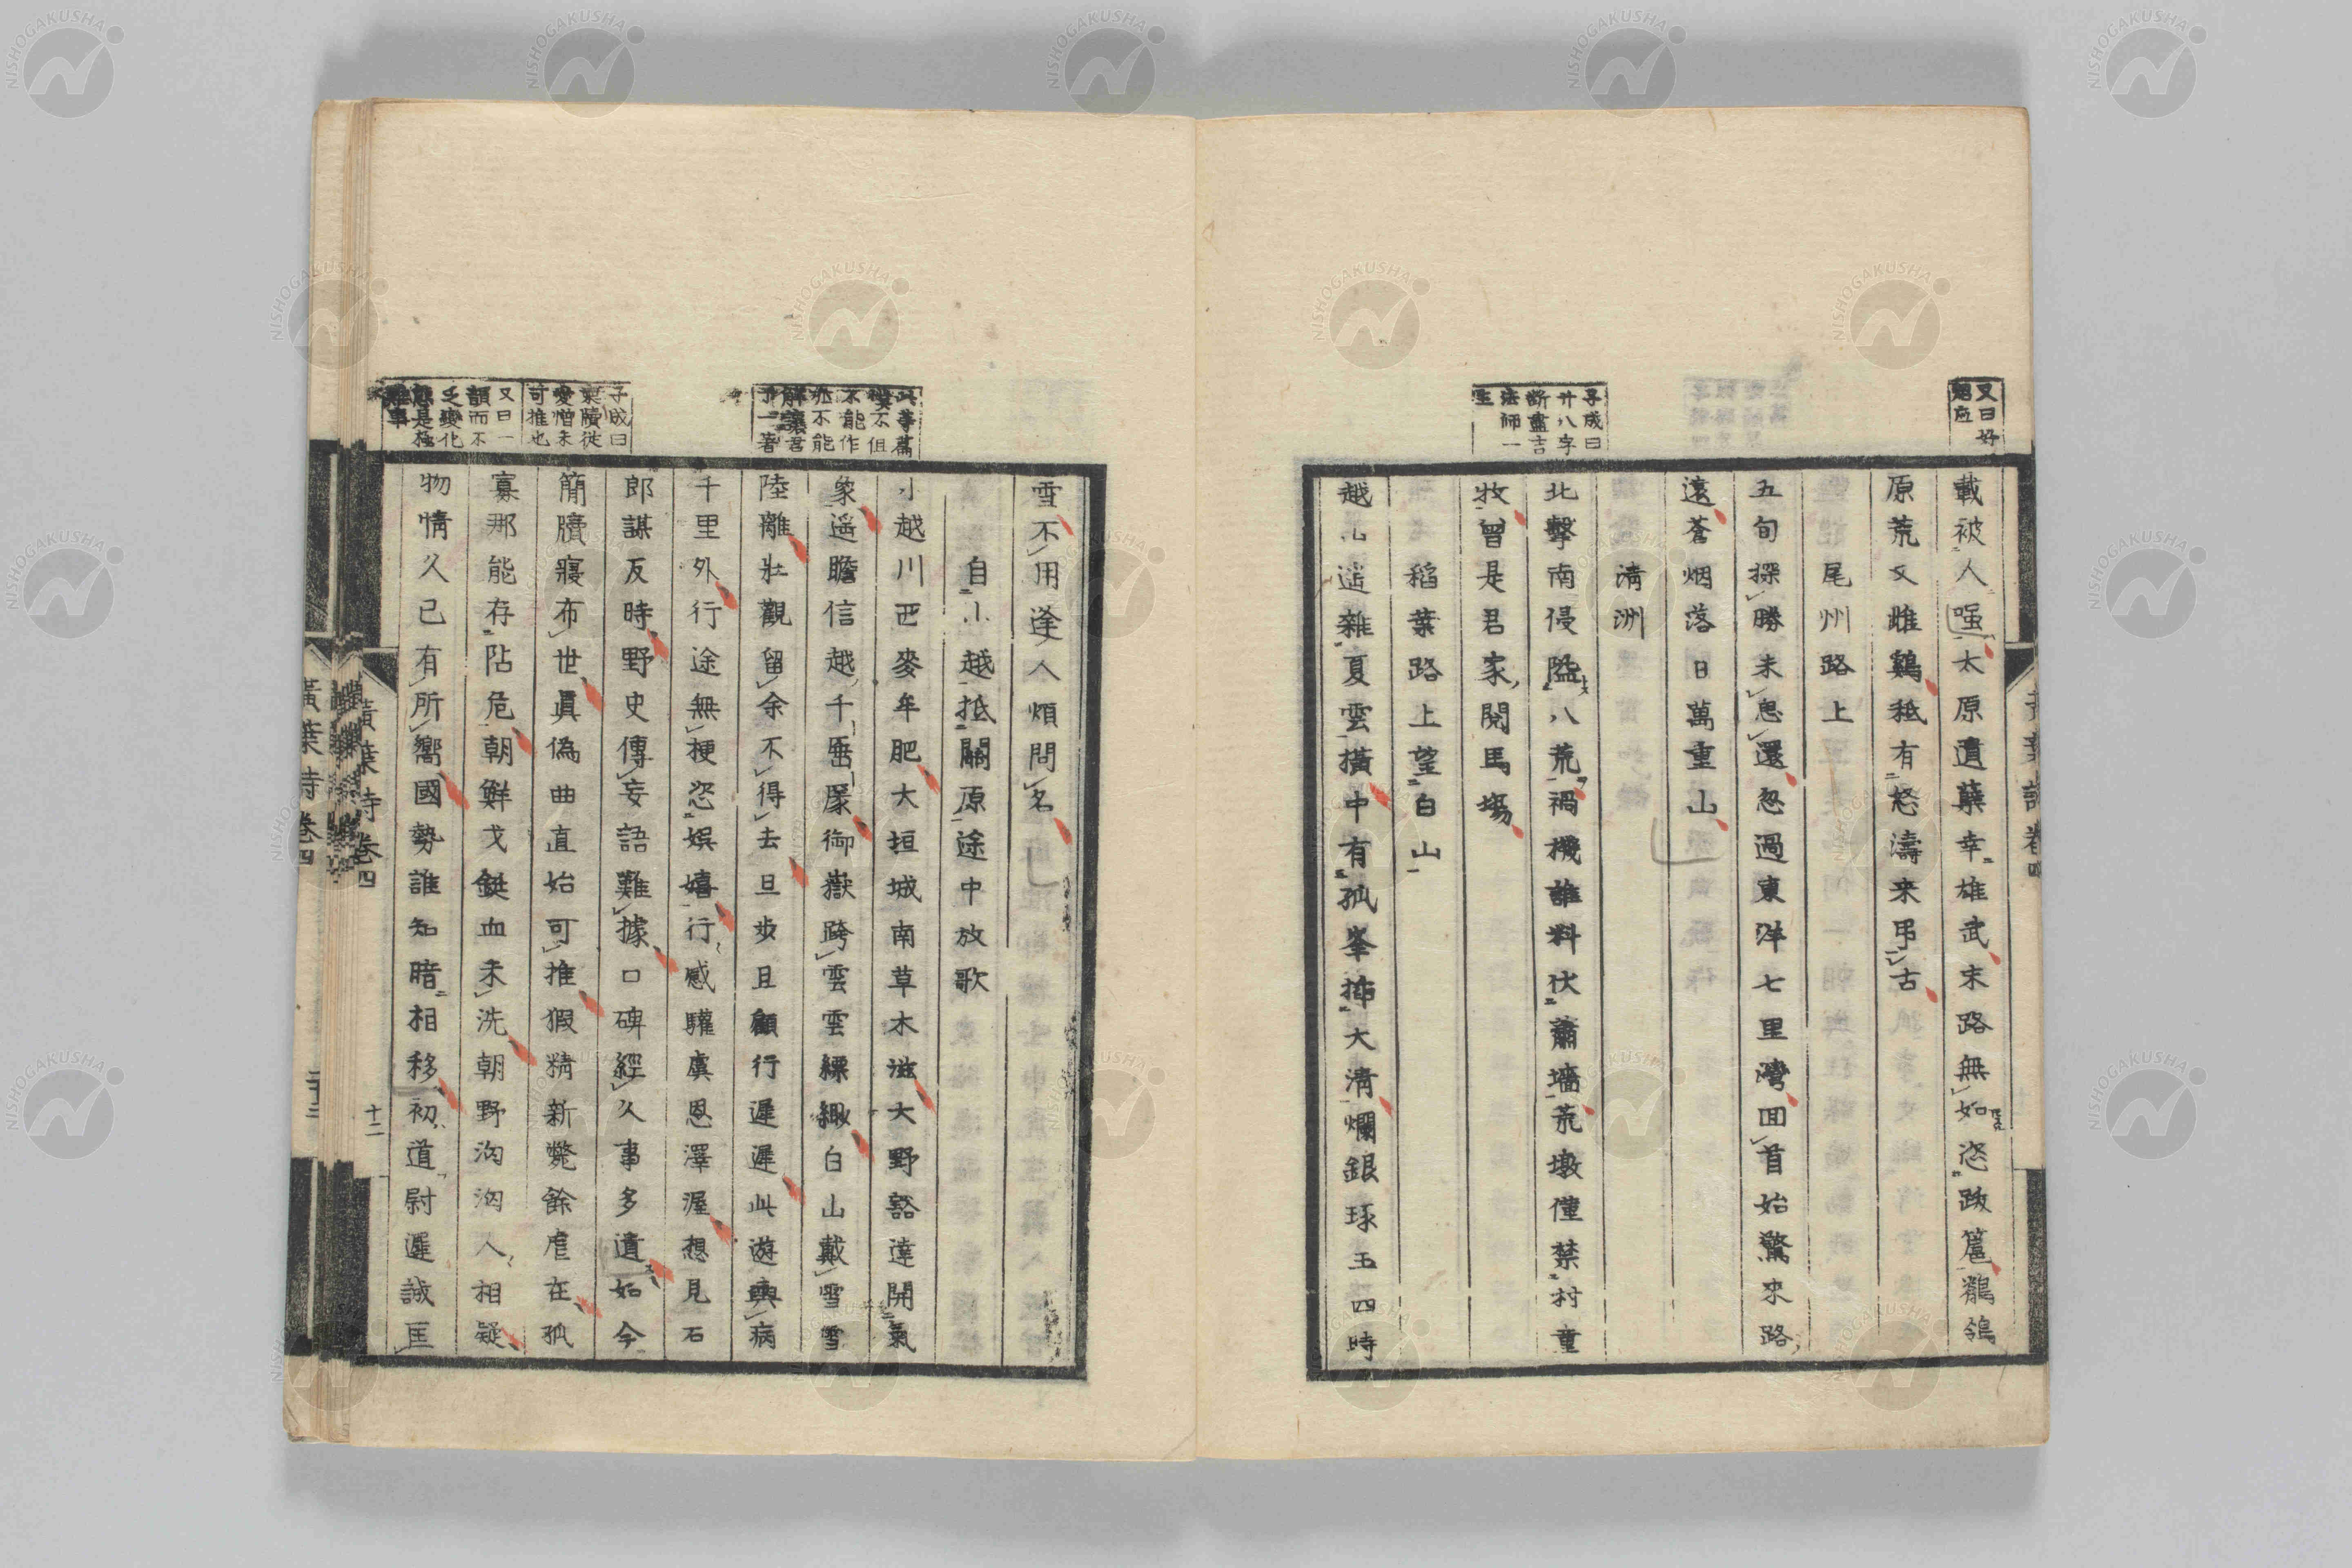 又曰好
載被人嗤太原遺蘖幸雄武末路無如恣跋扈鶺鴒
原荒又雌鷄秖有怒濤来弔古
尾州路上
五旬探勝未息還忽過東洋七里灣回首始驚来路
遠蒼烟落日萬重山
清洲
子成曰
廿八字
断盡吉
法師一
生
北擊南侵隘八荒禍機誰料伏蕭墻荒墩僅禁村童
牧曾是君家閲馬場
稲葉路上望白山
越山遥雜夏雲橫中有孤峯挿大清爛銀琢玉四時
雪不用逢人煩問名
自小越抵關原途中放歌
此等篇
不能作
亦不能
解讓君
子一著
小越川西麥牟肥大垣城南草木滋大野豁達開氣
象遥瞻信越千疊屏御嶽跨雲雲縹緲白山戴雪雪
陸離壯觀留余不得去且步且顧行遲遲此遊興病
千里外行途無梗恣娯嬉行感驩虞恩澤渥想見石
郎謀反時野史傳妄語難據口碑經久事多遺如今
子成曰
案牘従
愛憎未
可推也
簡牘寢布世真偽曲直始可推猴精新斃餘虐在孤
又曰一
韻而不
乏變化
是極
難事
寡那能存阽危朝鮮戈鋋血未洗朝野洶洶人相疑
物情久已有所嚮國勢誰知暗相移初道尉遲誠匡
黄葉詩卷四
十二